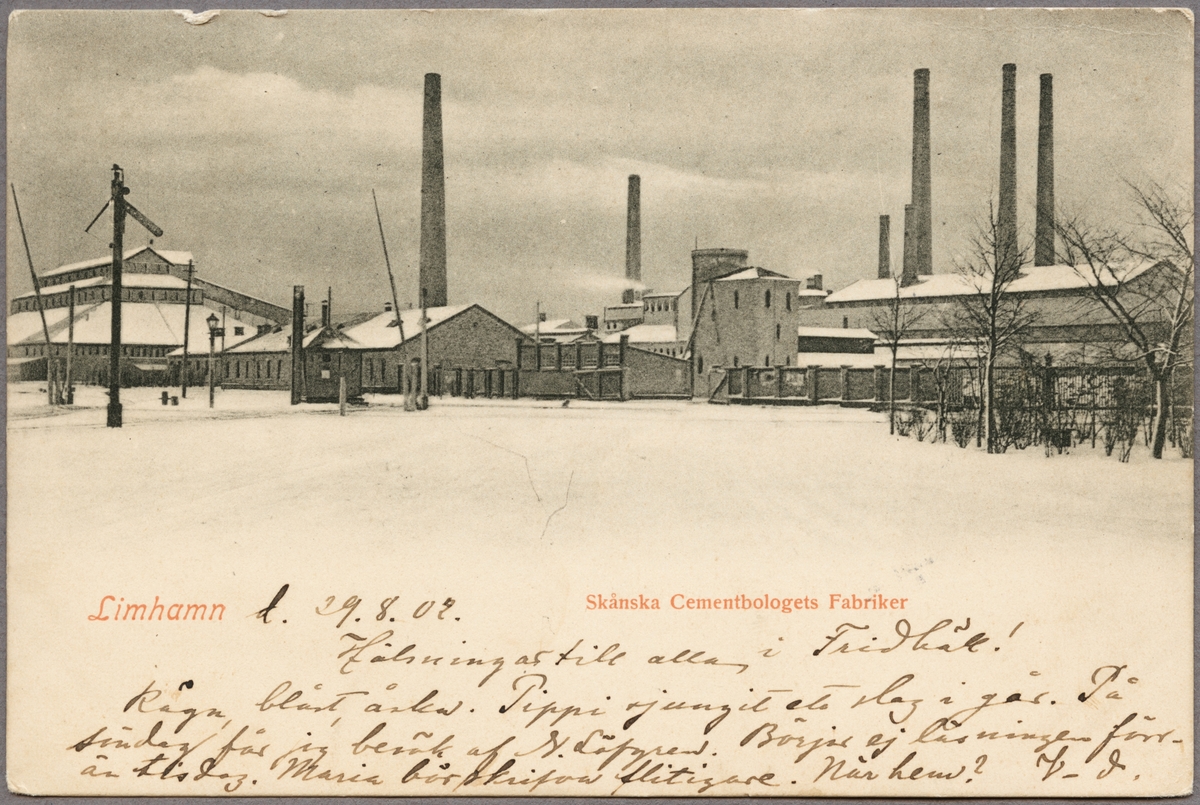 Limhamn d. 29.8.02. Skånska Cementbologets Fabriker
Hälsningar till alla i Fridhäll!
Rägn, blåst, åska. Pippi sjungit ett slag i går. På
söndag får jag besök af N. Löfgren. Börjar ej läsningen förr-
än tisdag. Maria bör skrifva flitigare. När hem? V-d.